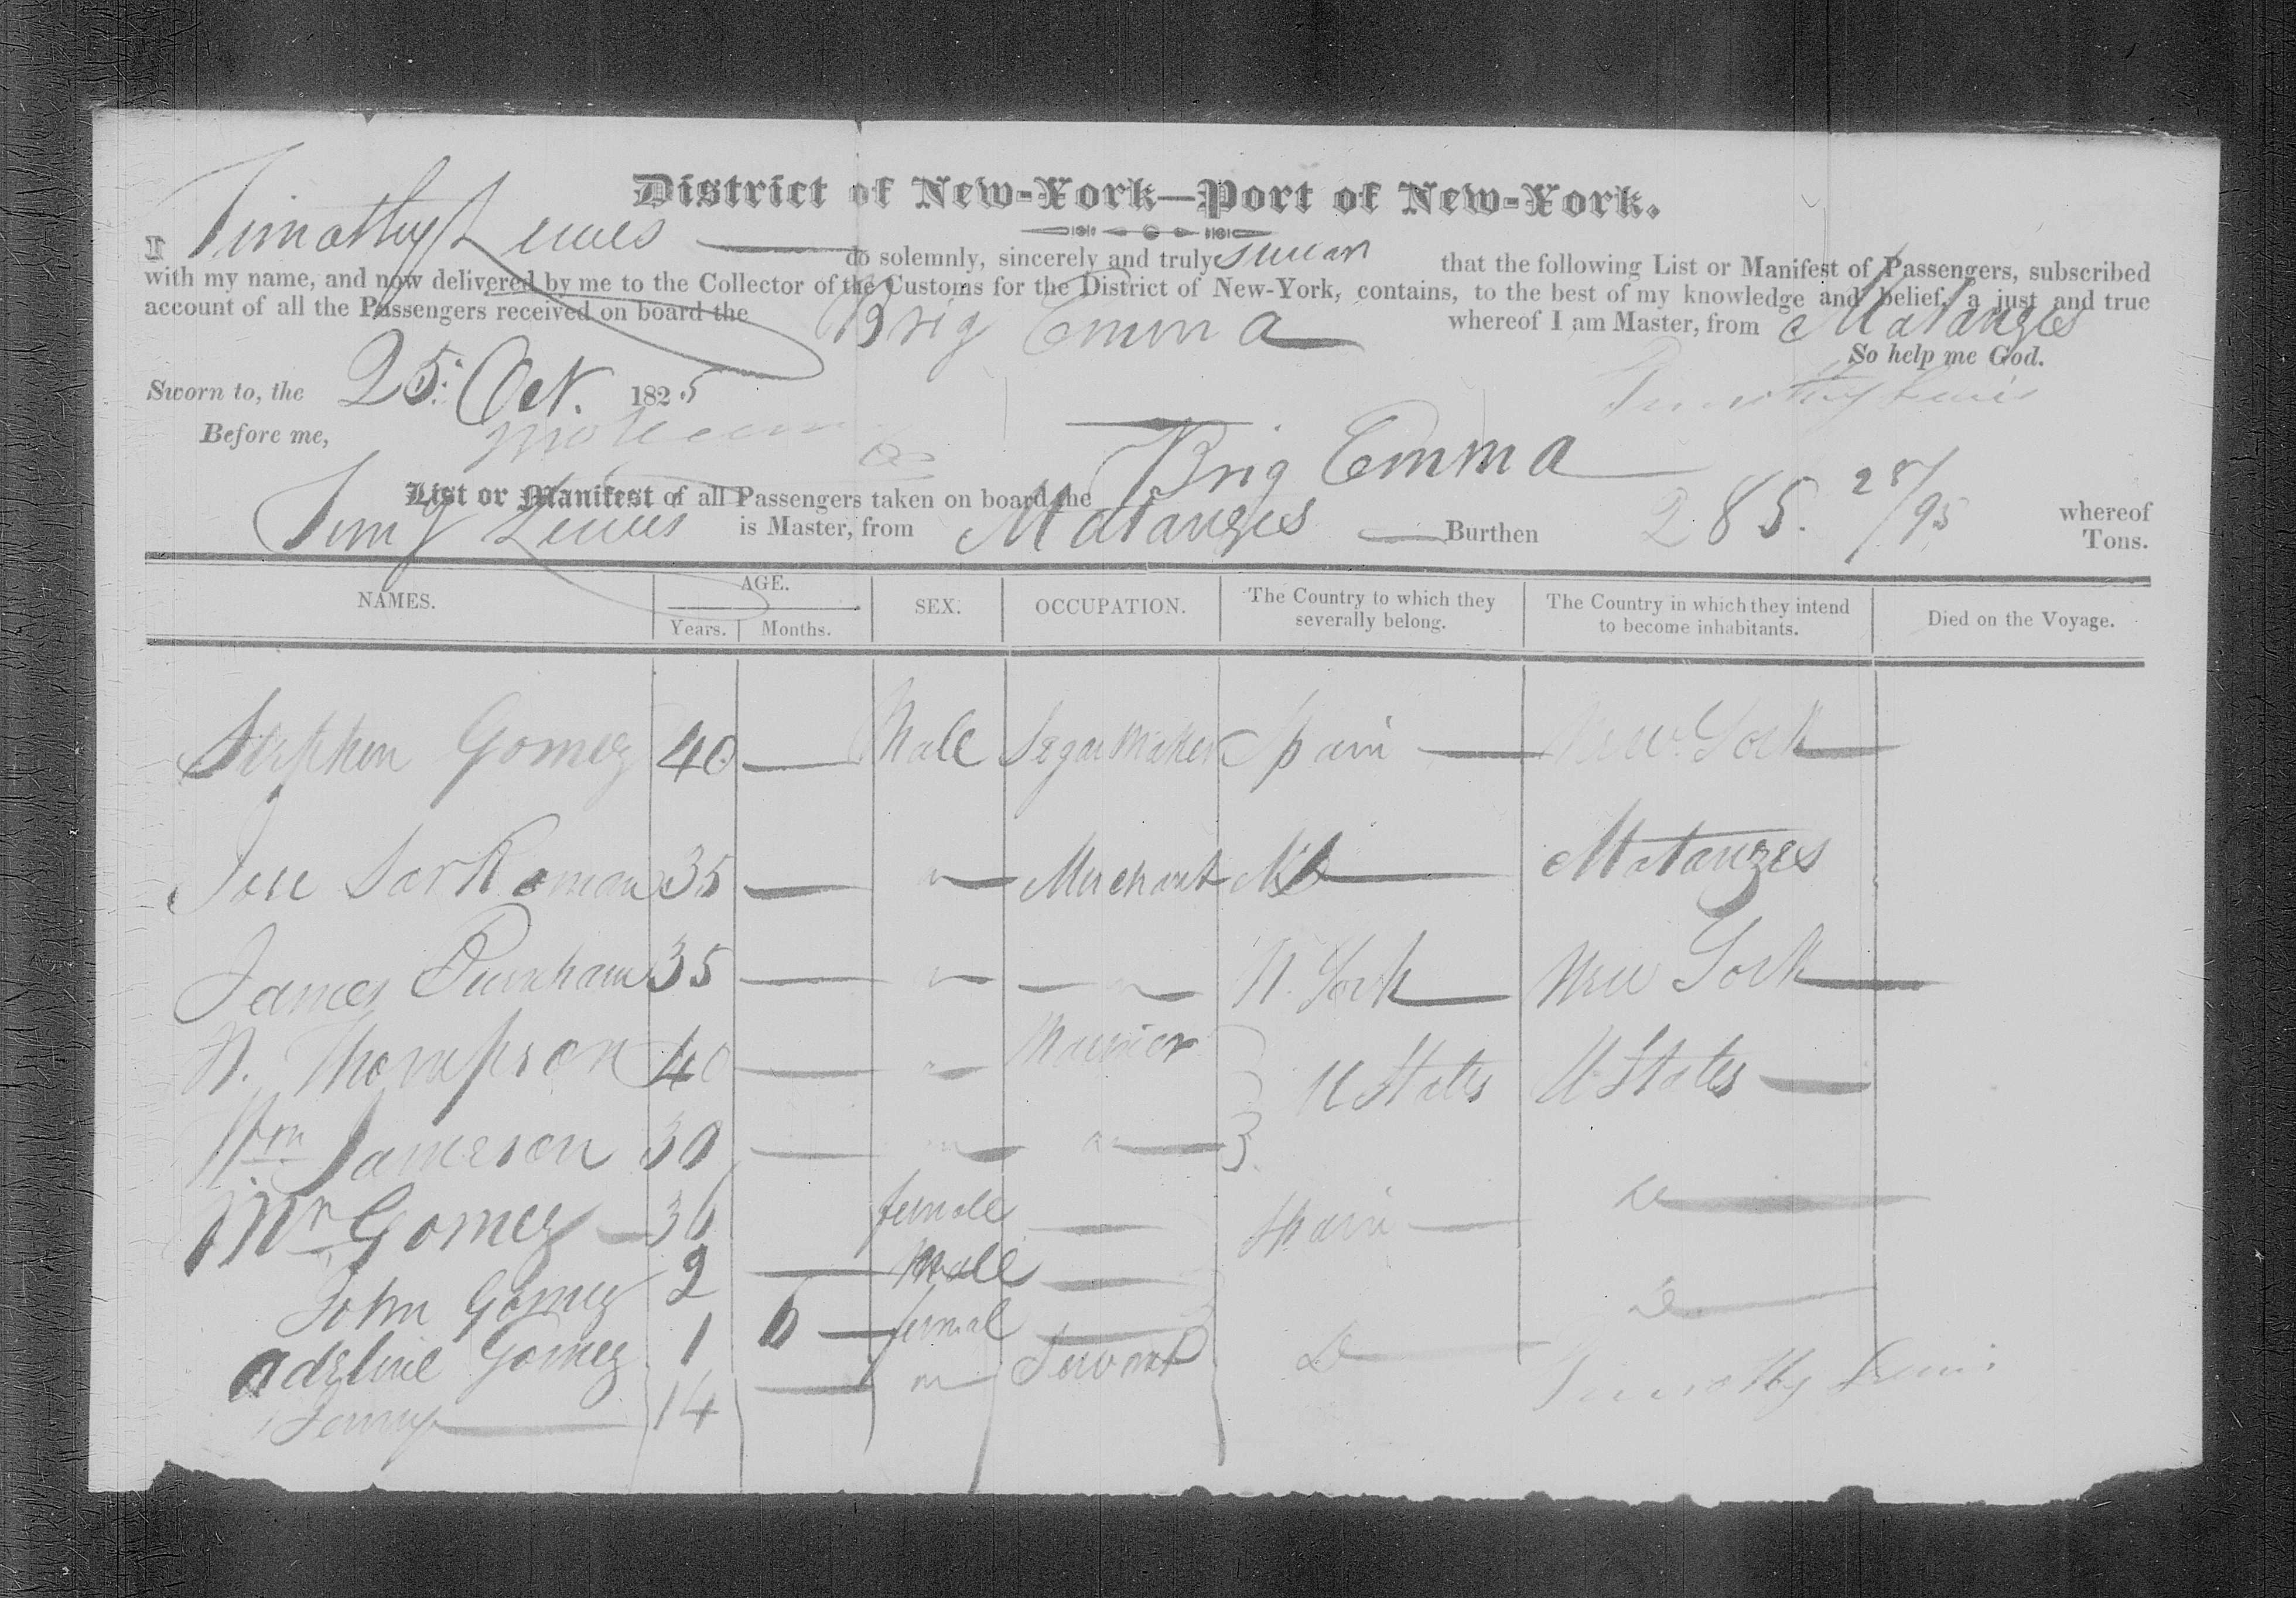 District of New-York—Port of New-York.
I Timothy Lewis — do solemnly, sincerely and truly swear that the following List or Manifest of Passengers, subscribed
with my name, and now delivered by me to the Collector of the Customs for the District of New-York, contains, to the best of my knowledge and belief, a just and true
account of all the Passengers received on board the Brig Emma whereof I am Master, from Matanzes
So help me God.
Sworn to, the 25. Oct. 1825 Timothy Lewis
Before me,
List or Manifest of all Passengers taken on board the Brig Emma whereof
Timy Lewis is Master, from Matanzes — Burthen 285. 28/95 Tons.
NAMES. AGE. Years. Months. SEX. OCCUPATION. The Country to which they severally belong. The Country in which they intend to become inhabitants. Died on the Voyage.
Stephen Gomez 40 — Male Segar Maker Spain — New York —
Jose 35 — " — Merchant — Matanzes
James Burnham 35 — " — " N. York — New York —
N. Thompson 40 — " Marinor U States U States —
Wm Jameson 30 — " " —
Mrs Gomez — 36 female — Spain — Do —
John Gomez 2 — Male —
Adeline Gomez 1 6 — femal — Do —
Jenny — 14 — " Servant Do — Timothy Lewis